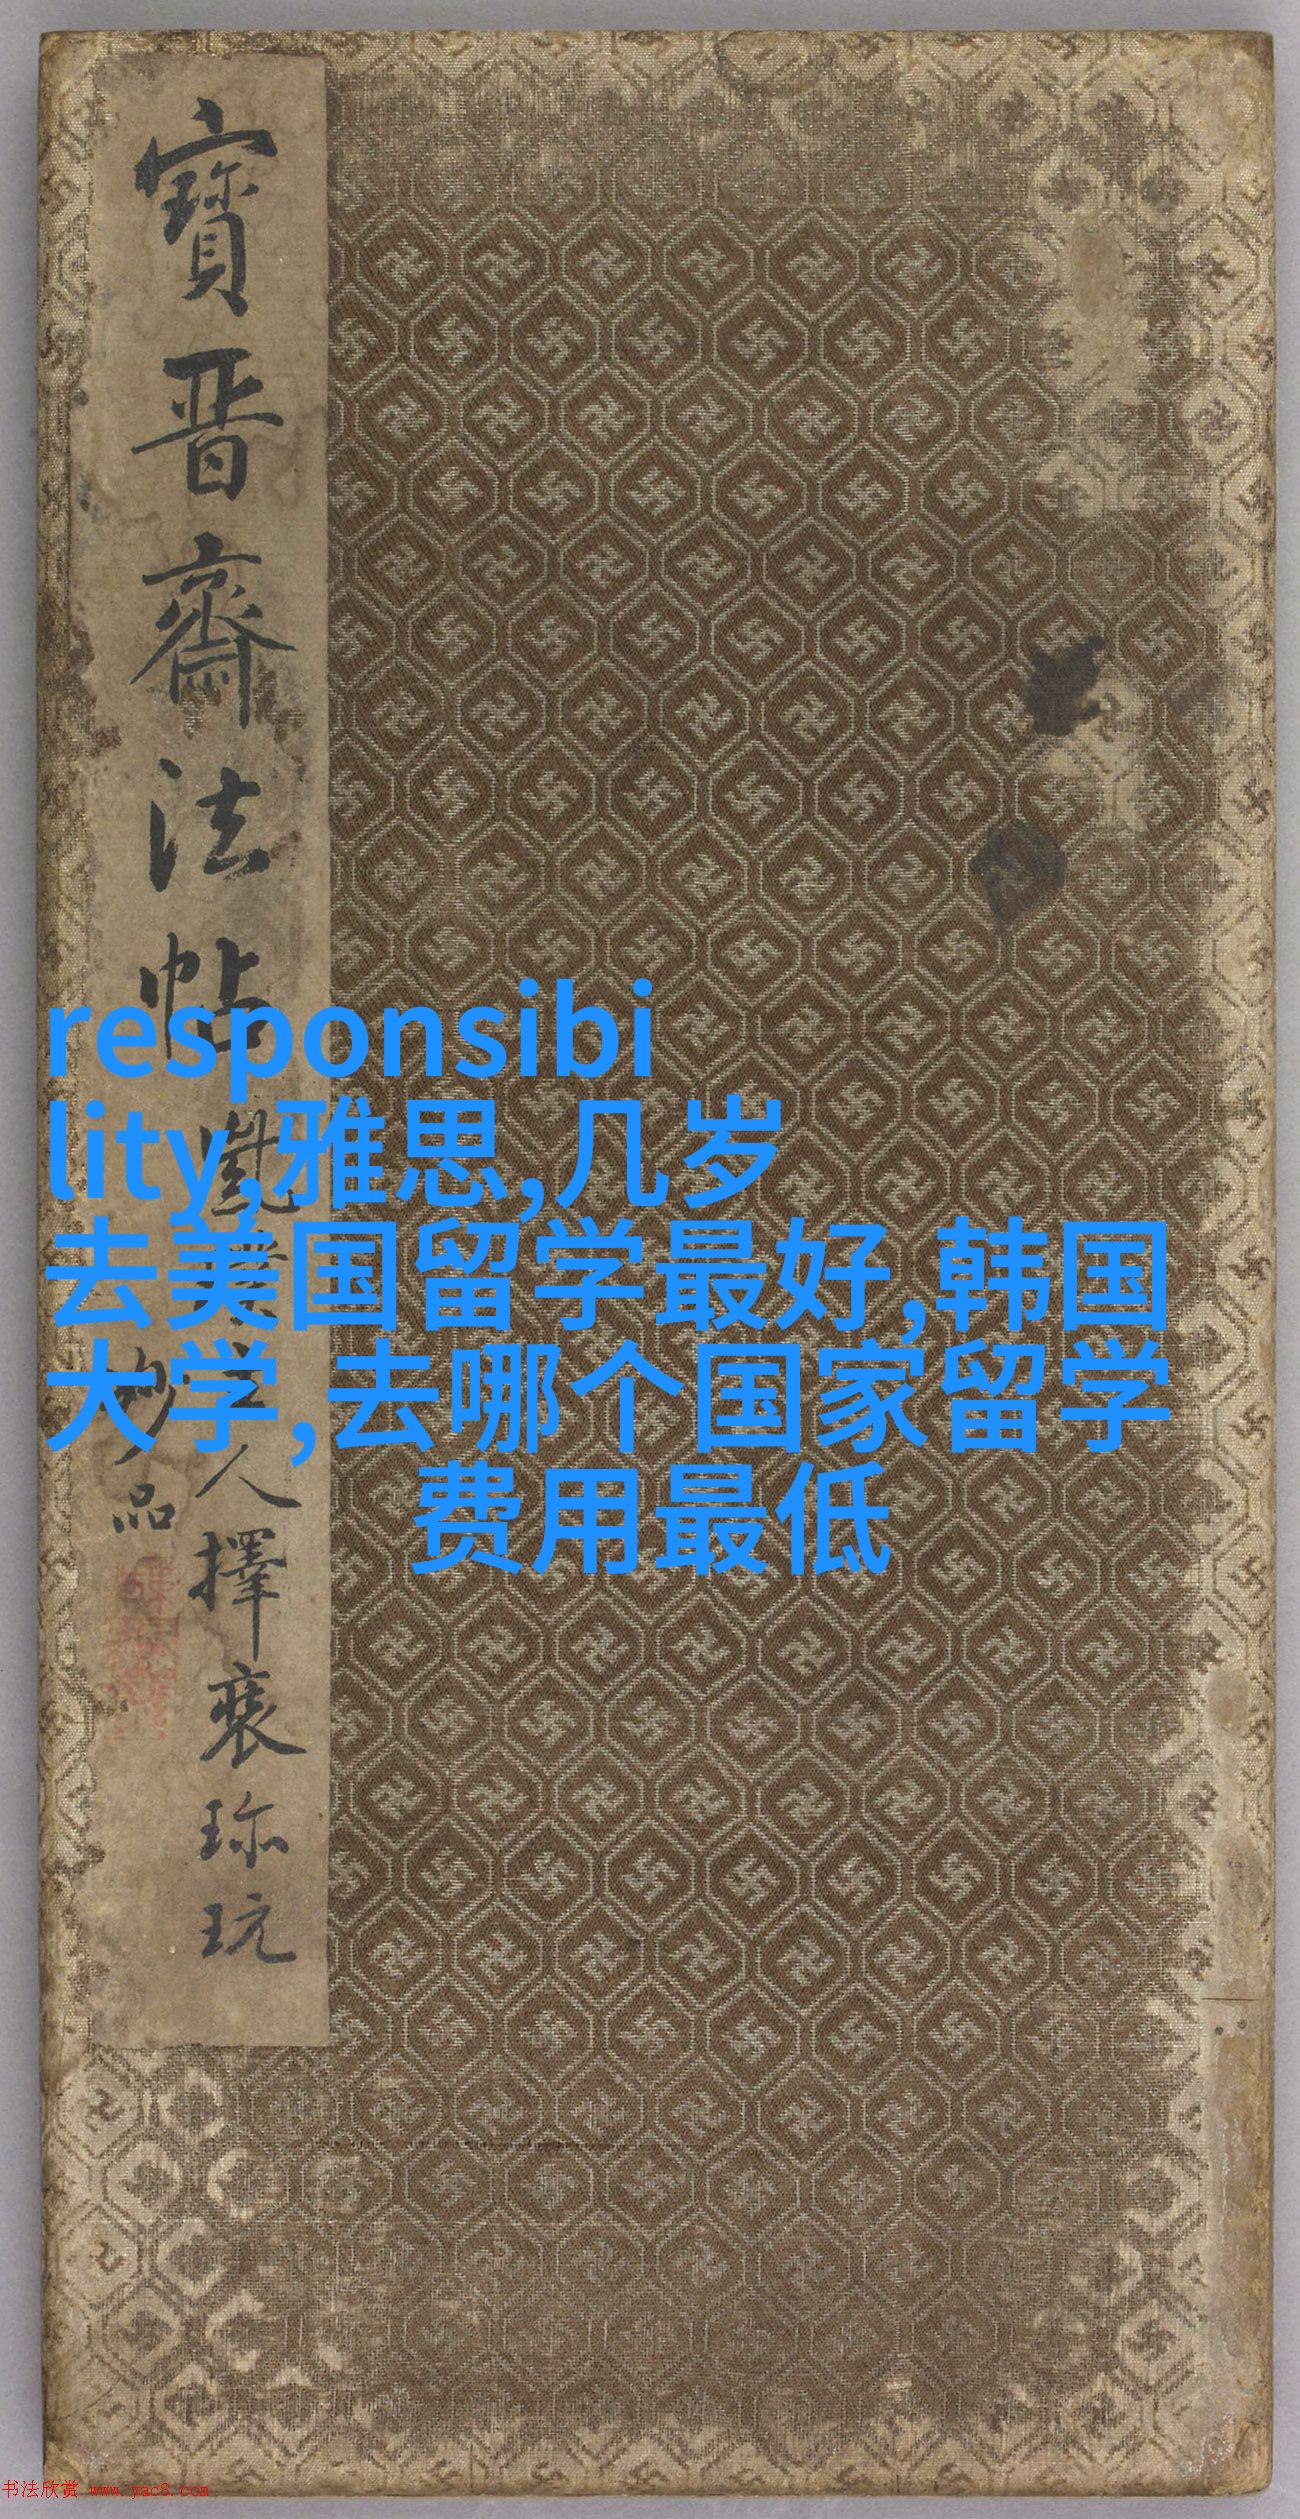 寶晉齋法帖
人擇裘珎玩
妙品
responsibi
lity,雅思,几岁
去美国留学最好,韩国
大学,去哪个国家留学
费用最低
书法欣赏 www.yac8.com